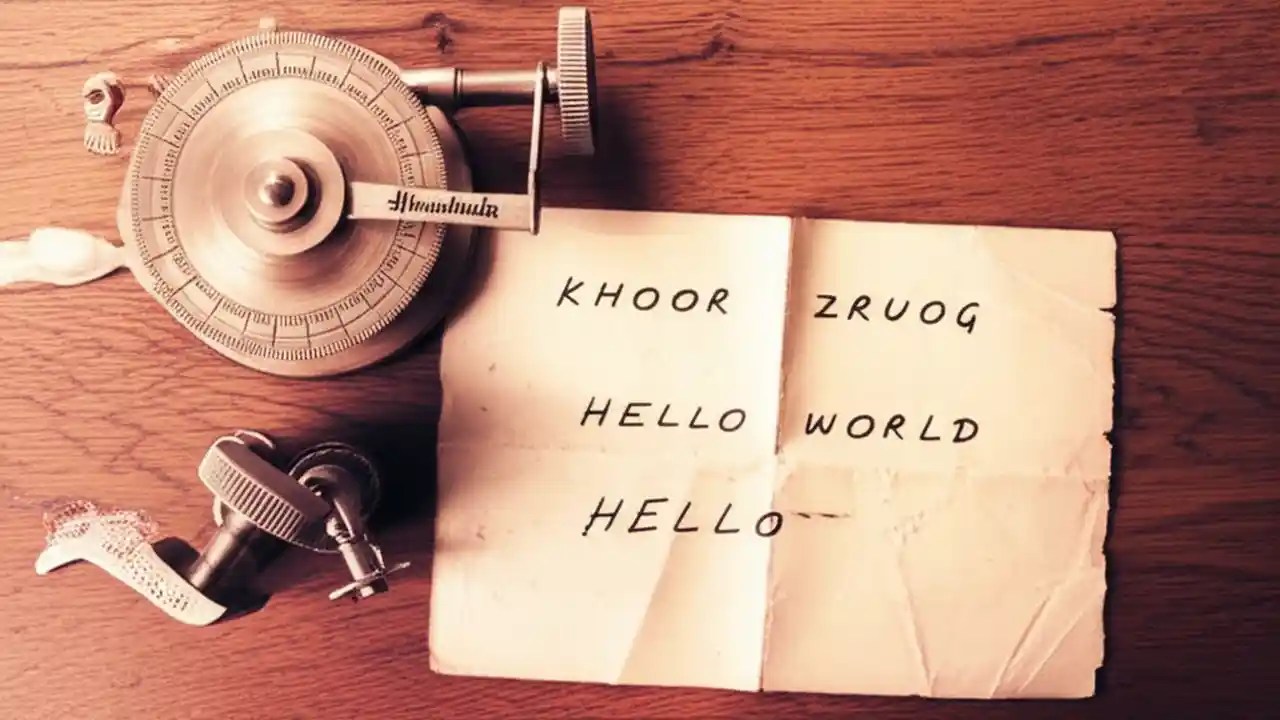 KHOOR ZRUOG
HELLO WORLD
HELLO